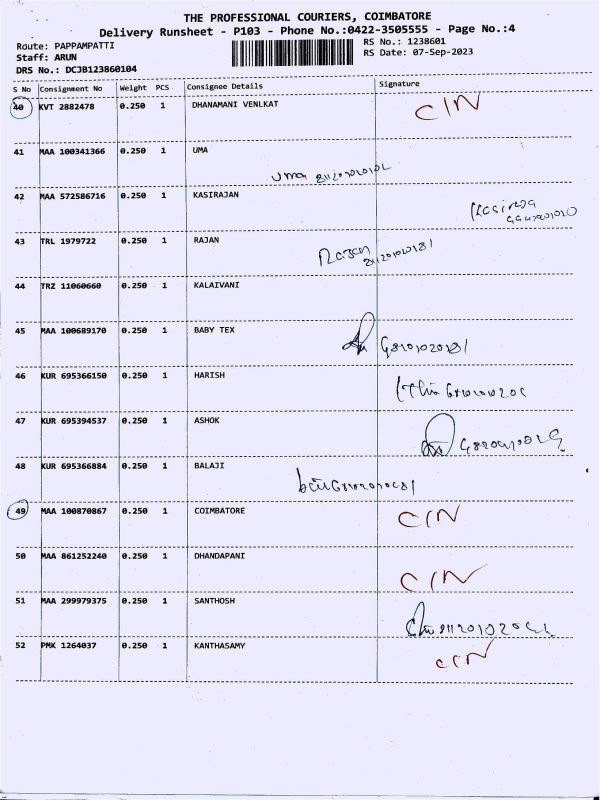 THE PROFESSIONAL COURIERS, COIMBATORE
Delivery Runsheet - P103 - Phone No.:0422-3505555 - Page No.:4
Route: PAPPAMPATTI
RS No.: 1238601
Staff: ARUN
RS Date: 07-Sep-2023
DRS No.: DCJB123860104
S No Consignment No Weight PCS Consignee Details Signature
40 KVT 2882478 0.250 1 DHANAMANI VENLKAT CIN
41 MAA 100341366 0.250 1 UMA
uma
42 MAA 572586716 0.250 1 KASIRAJAN
43 TRL 1979722 0.250 1 RAJAN
44 TRZ 11060660 0.250 1 KALAIVANI
45 MAA 100689170 0.250 1 BABY TEX
46 KUR 695366150 0.250 1 HARISH
47 KUR 695394537 0.250 1 ASHOK
48 KUR 695366884 0.250 1 BALAJI
49 MAA 100870867 0.250 1 COIMBATORE CIN
50 MAA 861252240 0.250 1 DHANDAPANI CIN
51 MAA 299979375 0.250 1 SANTHOSH
52 PMK 1264037 0.250 1 KANTHASAMY CIN